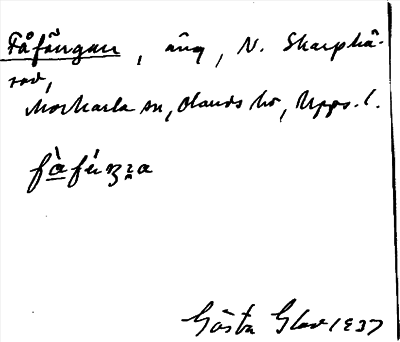 Fåfängan, äng, N. Skarphä-
rad,
Morkarla sn, Olands hd, Upps. l.
Gösta Glav 1937